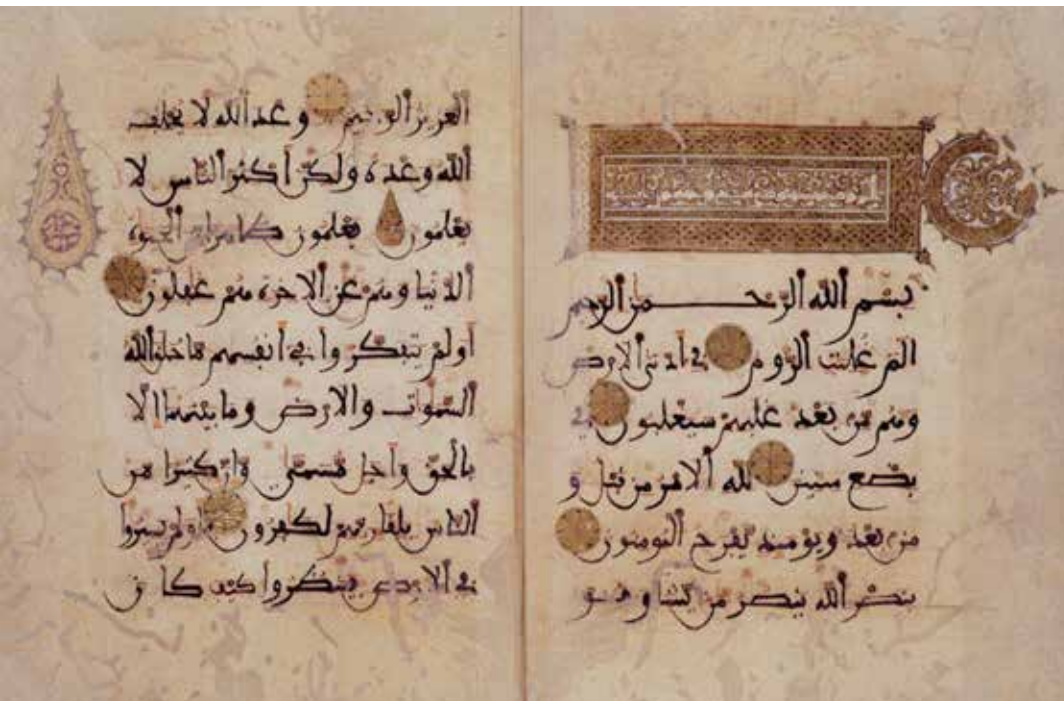 بسم الله الرحمن الرحيم
الم غلبت الروم في أدنى الارض
وهم من بعد غلبهم سيغلبون في
بضع سنين لله ألامر من قبل و
من بعد ويومئذ يفرح المومنون
بنصر الله ينصر من يشا وهو
العزيز الرحيم وعد الله لا يخلف
الله وعده ولكن أكثر الناس لا
يعلمون يعلمون ظاهرا من الحيوة
الدنيا وهم عن الاخرة هم غفلون
أولم يتفكروا في أنفسهم ما خلق الله
السموات والارض وما بينهما الا
بالحق وأجل مسمى وان كثيرا من
الناس بلقاء ربهم لكفرون أولم يسيروا
في الارض فينظروا كيف كان